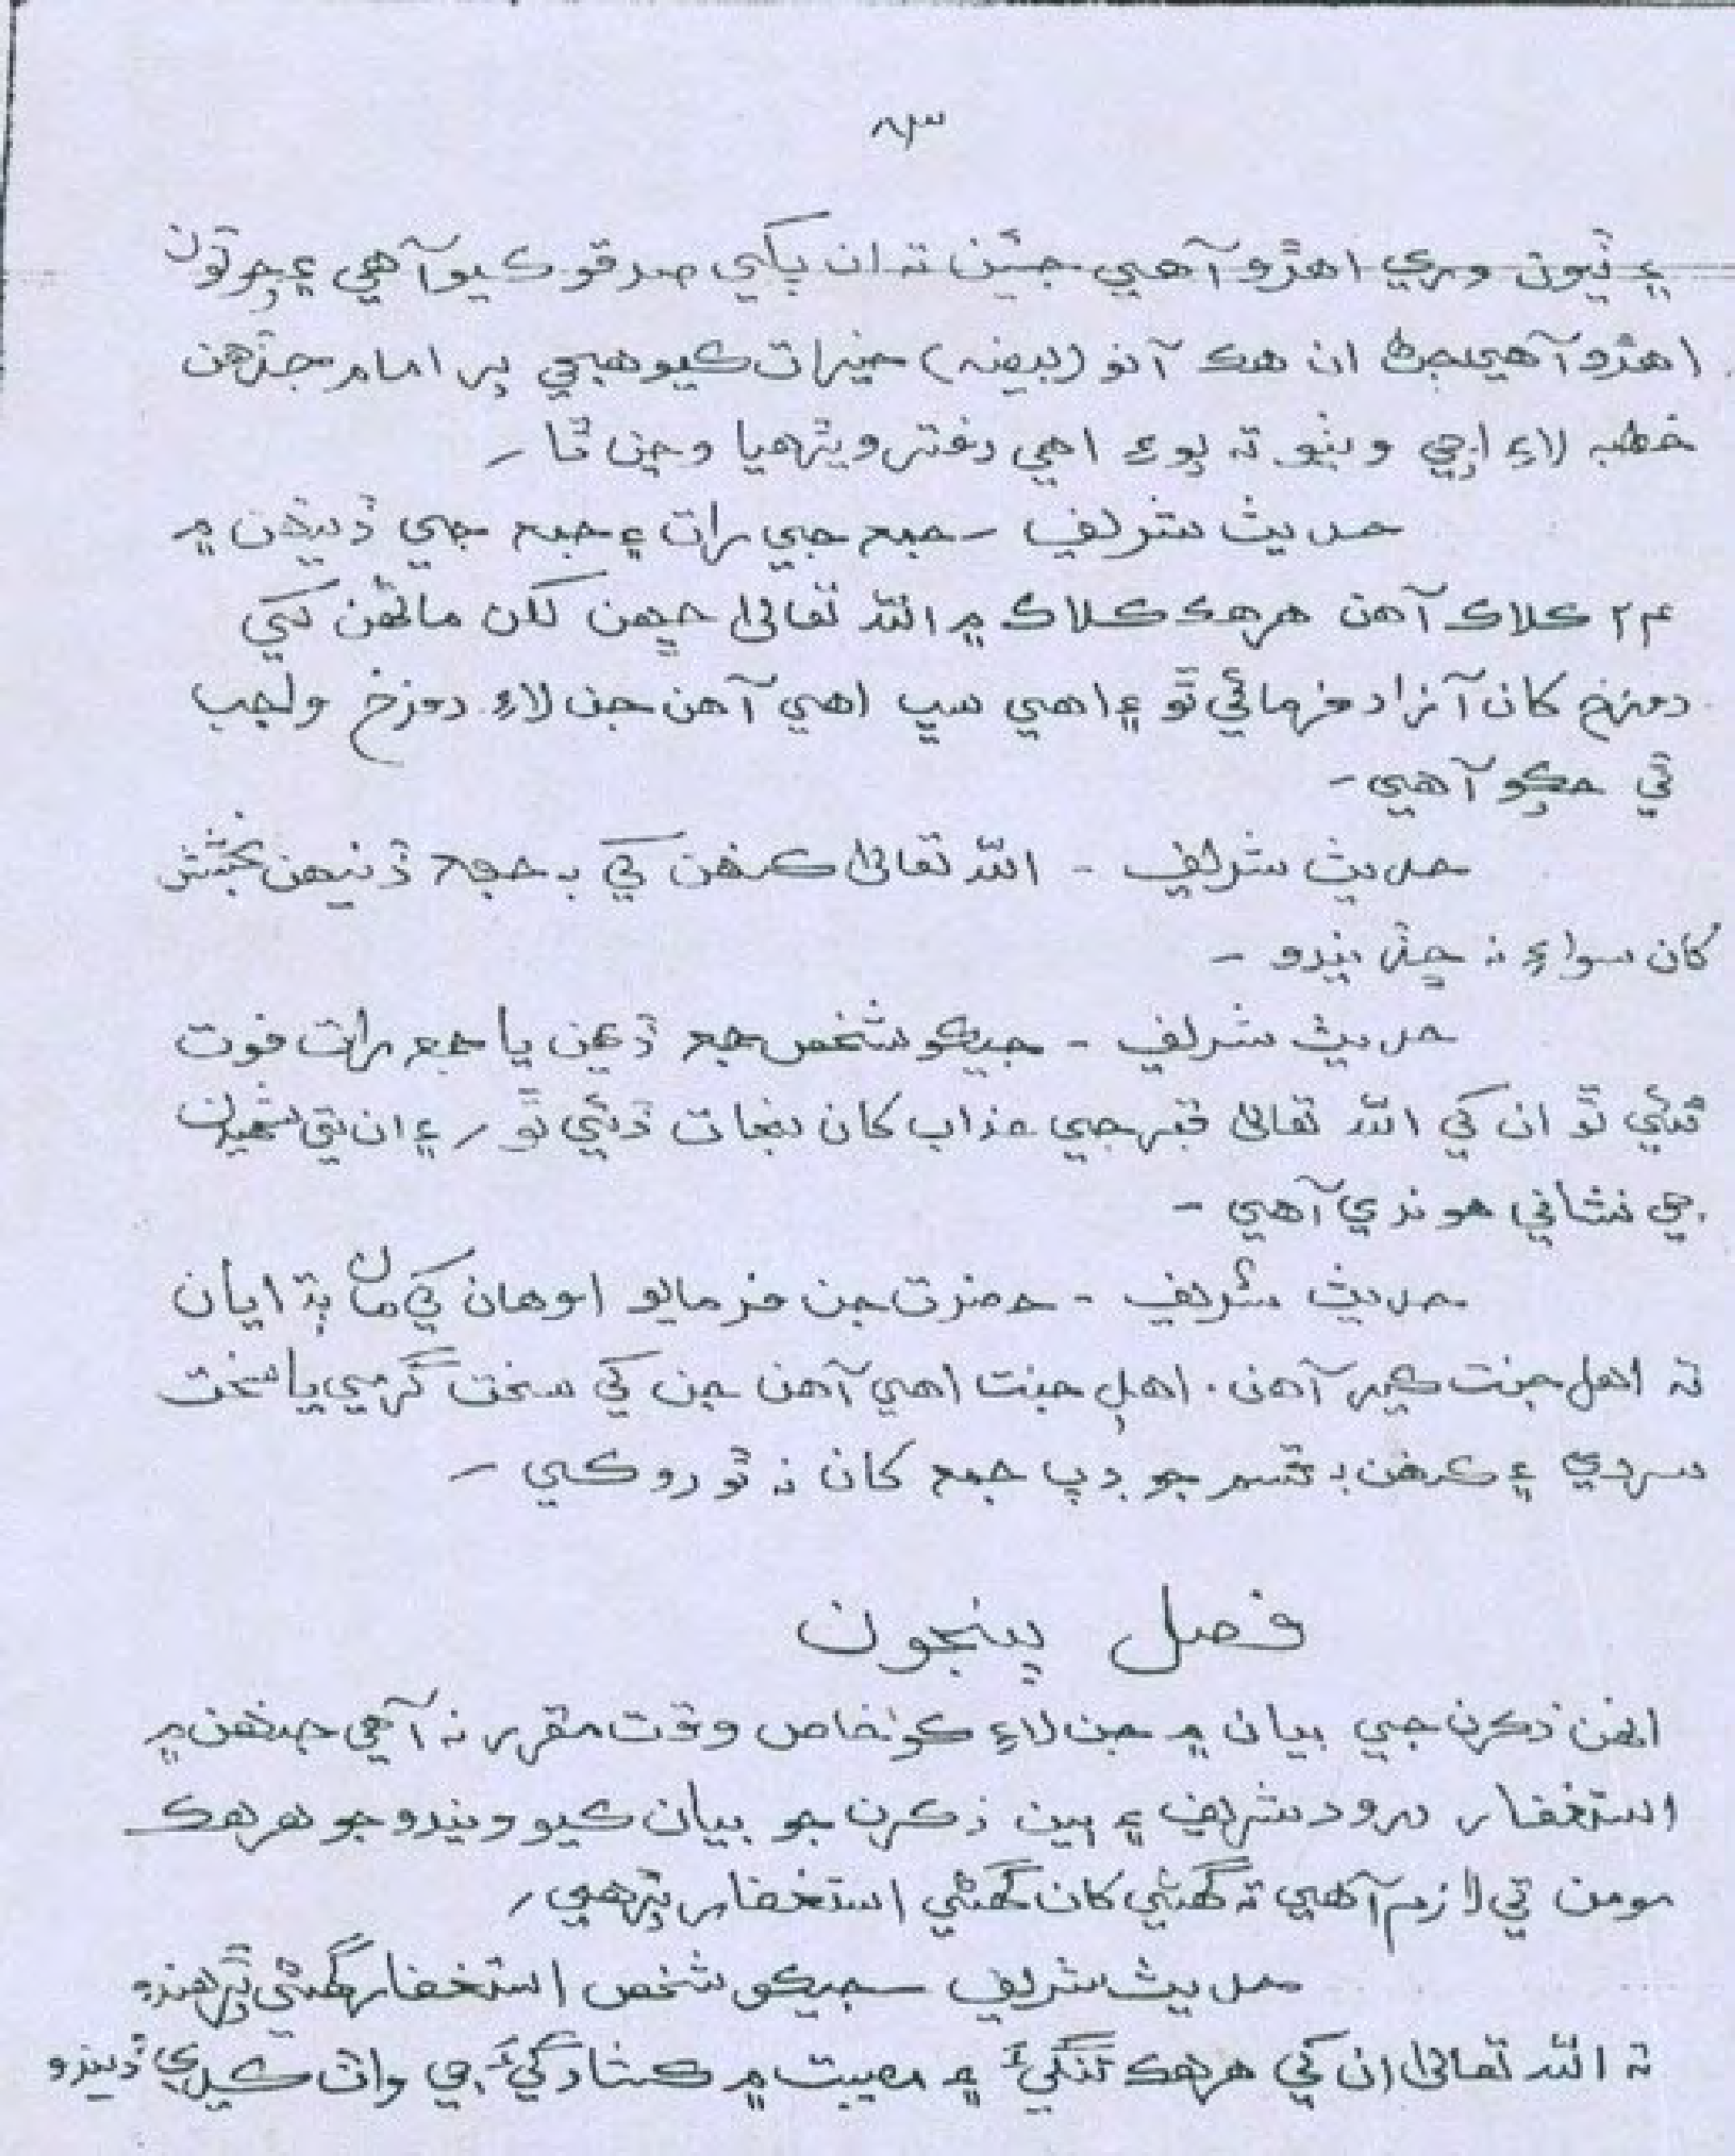 ۸۳
۽ ٽيون وري اهڙو آهي جيئن ته ان ٻڪي صدقو ڪيو آهي ۽ چوٿون
اهڙو آهي جڻ ان هڪ آنو (بيضہ) خيرات ڪيو هجي پر امام جڏهن
خطبہ لاءِ اچي ويٺو ته پوءِ اهي دفتر ويڙهيا وڃن ٿا ۔
حديث شريف ۔ جمع جي رات ۽ جمع جي ڏينهن ۾
۲۴ ڪلاڪ آهن هر هڪ ڪلاڪ ۾ الله تعاليٰ ڇهن لکن ماڻهن کي
دوزخ کان آزاد فرمائي ٿو ۽ اهي سڀ اهي آهن جن لاءِ دوزخ واجب
ٿي چڪو آهي ۔
حديث شريف ۔ الله تعاليٰ ڪنهن کي بہ جمعہ ڏينهن بخشش
کان سواءِ نہ ڇڏيندو ۔
حديث شريف ۔ جيڪو شخص جمع ڏينهن يا جمع رات فوت
ٿئي ٿو ان کي الله تعاليٰ قبر جي عذاب کان نجات ڏئي ٿو ۔ ۽ ان تي شهيدن
جي نشاني هوندي آهي ۔
حديث شريف ۔ حضرت جن فرمايو اوهان کي مان ٻڌايان
ته اهل جنت ڪير آهن . اهل جنت اهي آهن جن کي سخت گرمي يا سخت
سردي ۽ ڪنهن بہ قسم جو ڊپ جمع کان نہ ٿو روڪي ۔
فصل پنجون
انهن ذڪرن جي بيان ۾ جن لاءِ ڪو خاص وقت مقرر نہ آهي جنهن ۾
استغفار درود شريف ۽ ٻين ذڪرن جو بيان ڪيو ويندو جو هر هڪ
مومن تي لازم آهي ته گهڻي کان گهڻي استغفار پڙهي ۔
حديث شريف ۔ جيڪو شخص استغفار گهڻي پڙهندو
ته الله تعاليٰ ان کي هر هڪ تنگيءَ ۾ مصيبت ۾ ڪشادگيءَ جي واٽ ڪڍي ڏيندو